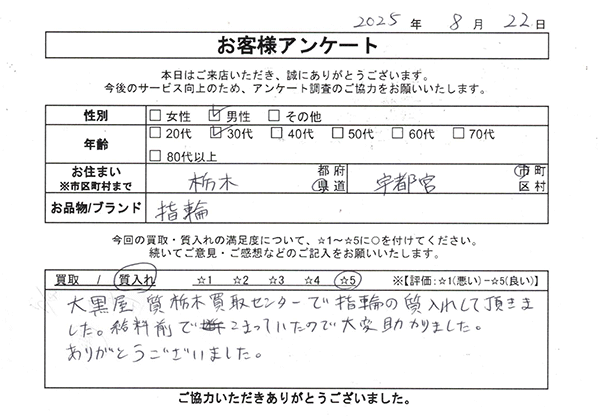 2025年 8月 22日
お客様アンケート
本日はご来店いただき、誠にありがとうございます。
今後のサービス向上のため、アンケート調査のご協力をお願いいたします。
性別 □ 女性 ☑ 男性 □ その他
年齢 □ 20代 ☑ 30代 □ 40代 □ 50代 □ 60代 □ 70代
□ 80代以上
お住まい
※市区町村まで 栃木 都府県道 宇都宮 市町区村
お品物/ブランド 指輪
今回の買取・質入れの満足度について、☆1～☆5に○を付けてください。
続いてご意見・ご感想などのご記入をお願いいたします。
買取 / 質入れ ☆1 ☆2 ☆3 ☆4 ☆5 ※【評価:☆1(悪い)-☆5(良い)】
大黒屋 質栃木買取センターで指輪の質入れして頂きま
した。給料前でこまっていたので大変助かりました。
ありがとうございました。
ご協力いただきありがとうございました。